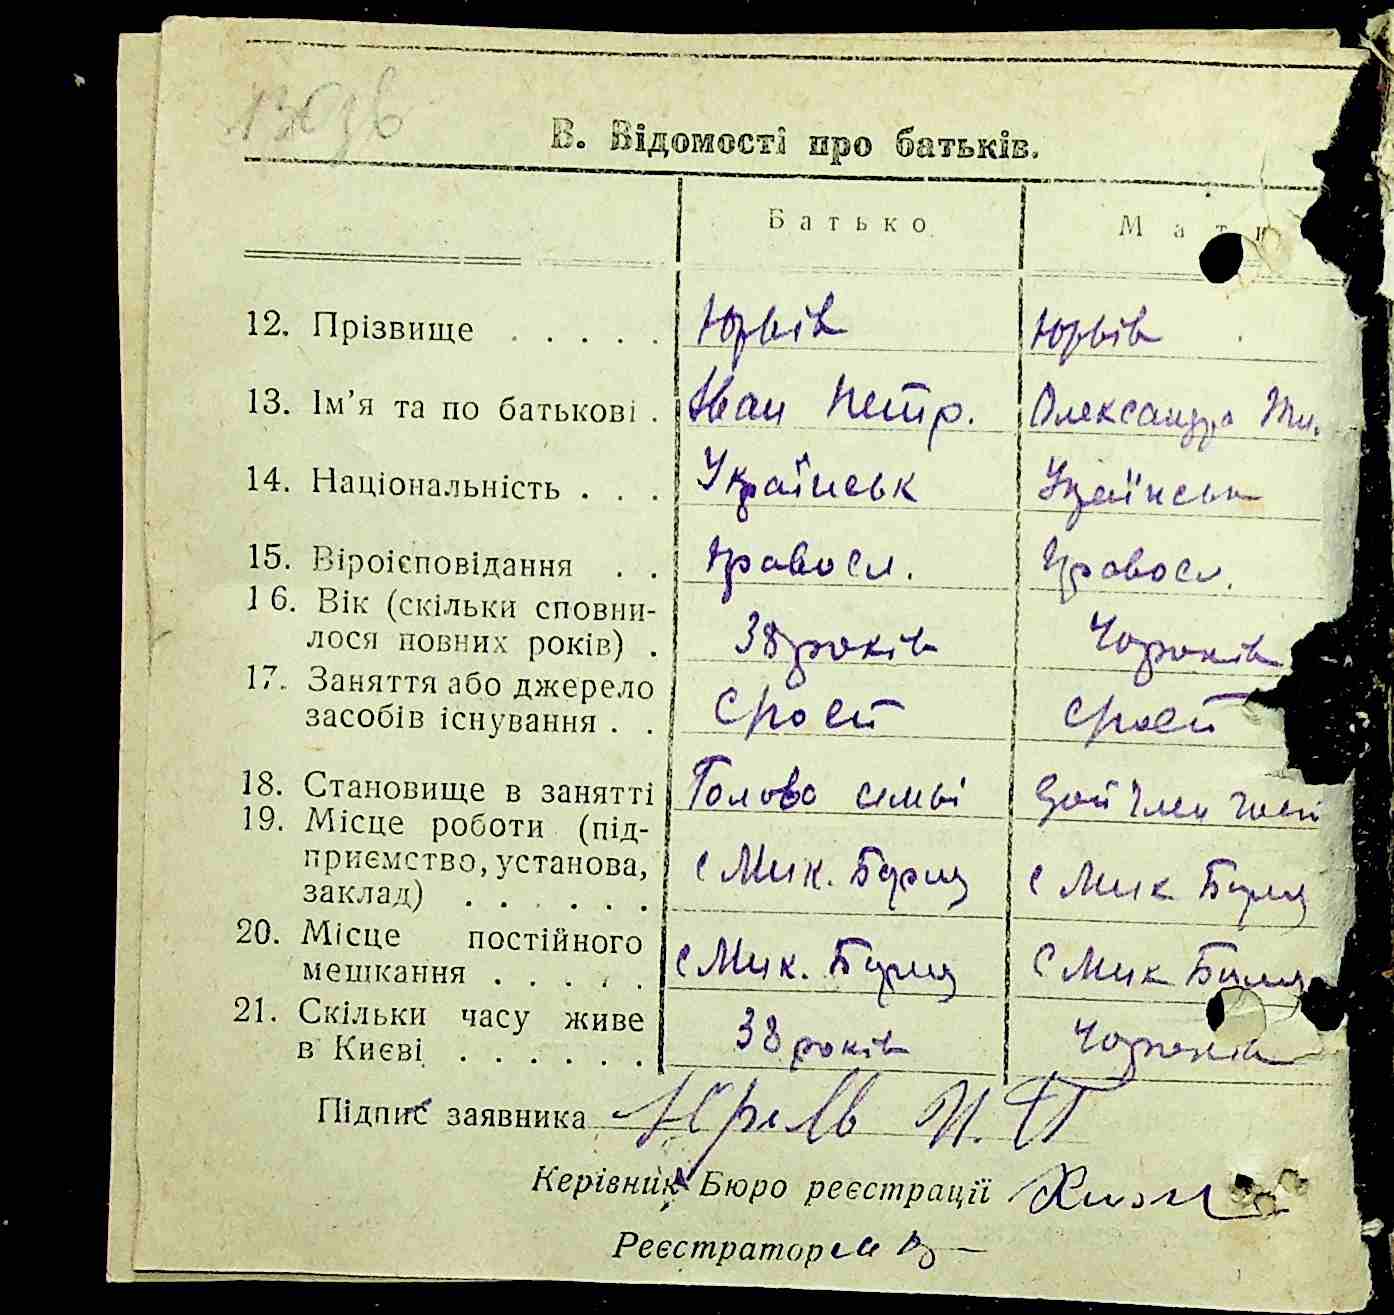 В. Відомості про батьків.
Батько Мати
12. Прізвище . . . . . Юрьів Юрьів
13. Ім’я та по батькові . Іван Петр. Олександра
14. Національність . . . Українськ Україньськ
15. Віроієповідання . . Правосл. Правосл.
16. Вік (скільки сповни-
лося повних років) . 38 років 40 років
17. Заняття або джерело
засобів існування . .
18. Становище в занятті Голова семьі член
19. Місце роботи (під-
приємство, установа, с Мик. Борщ с Мик Борщ
заклад) . . . . . .
20. Місце постійного
мешкання . . . . . с Мик. Борщ с Мик Борщ
21. Скільки часу живе
в Києві . . . . . . 38 років 40 років
Підпис заявника
Керівник Бюро реєстрації
Реєстратор